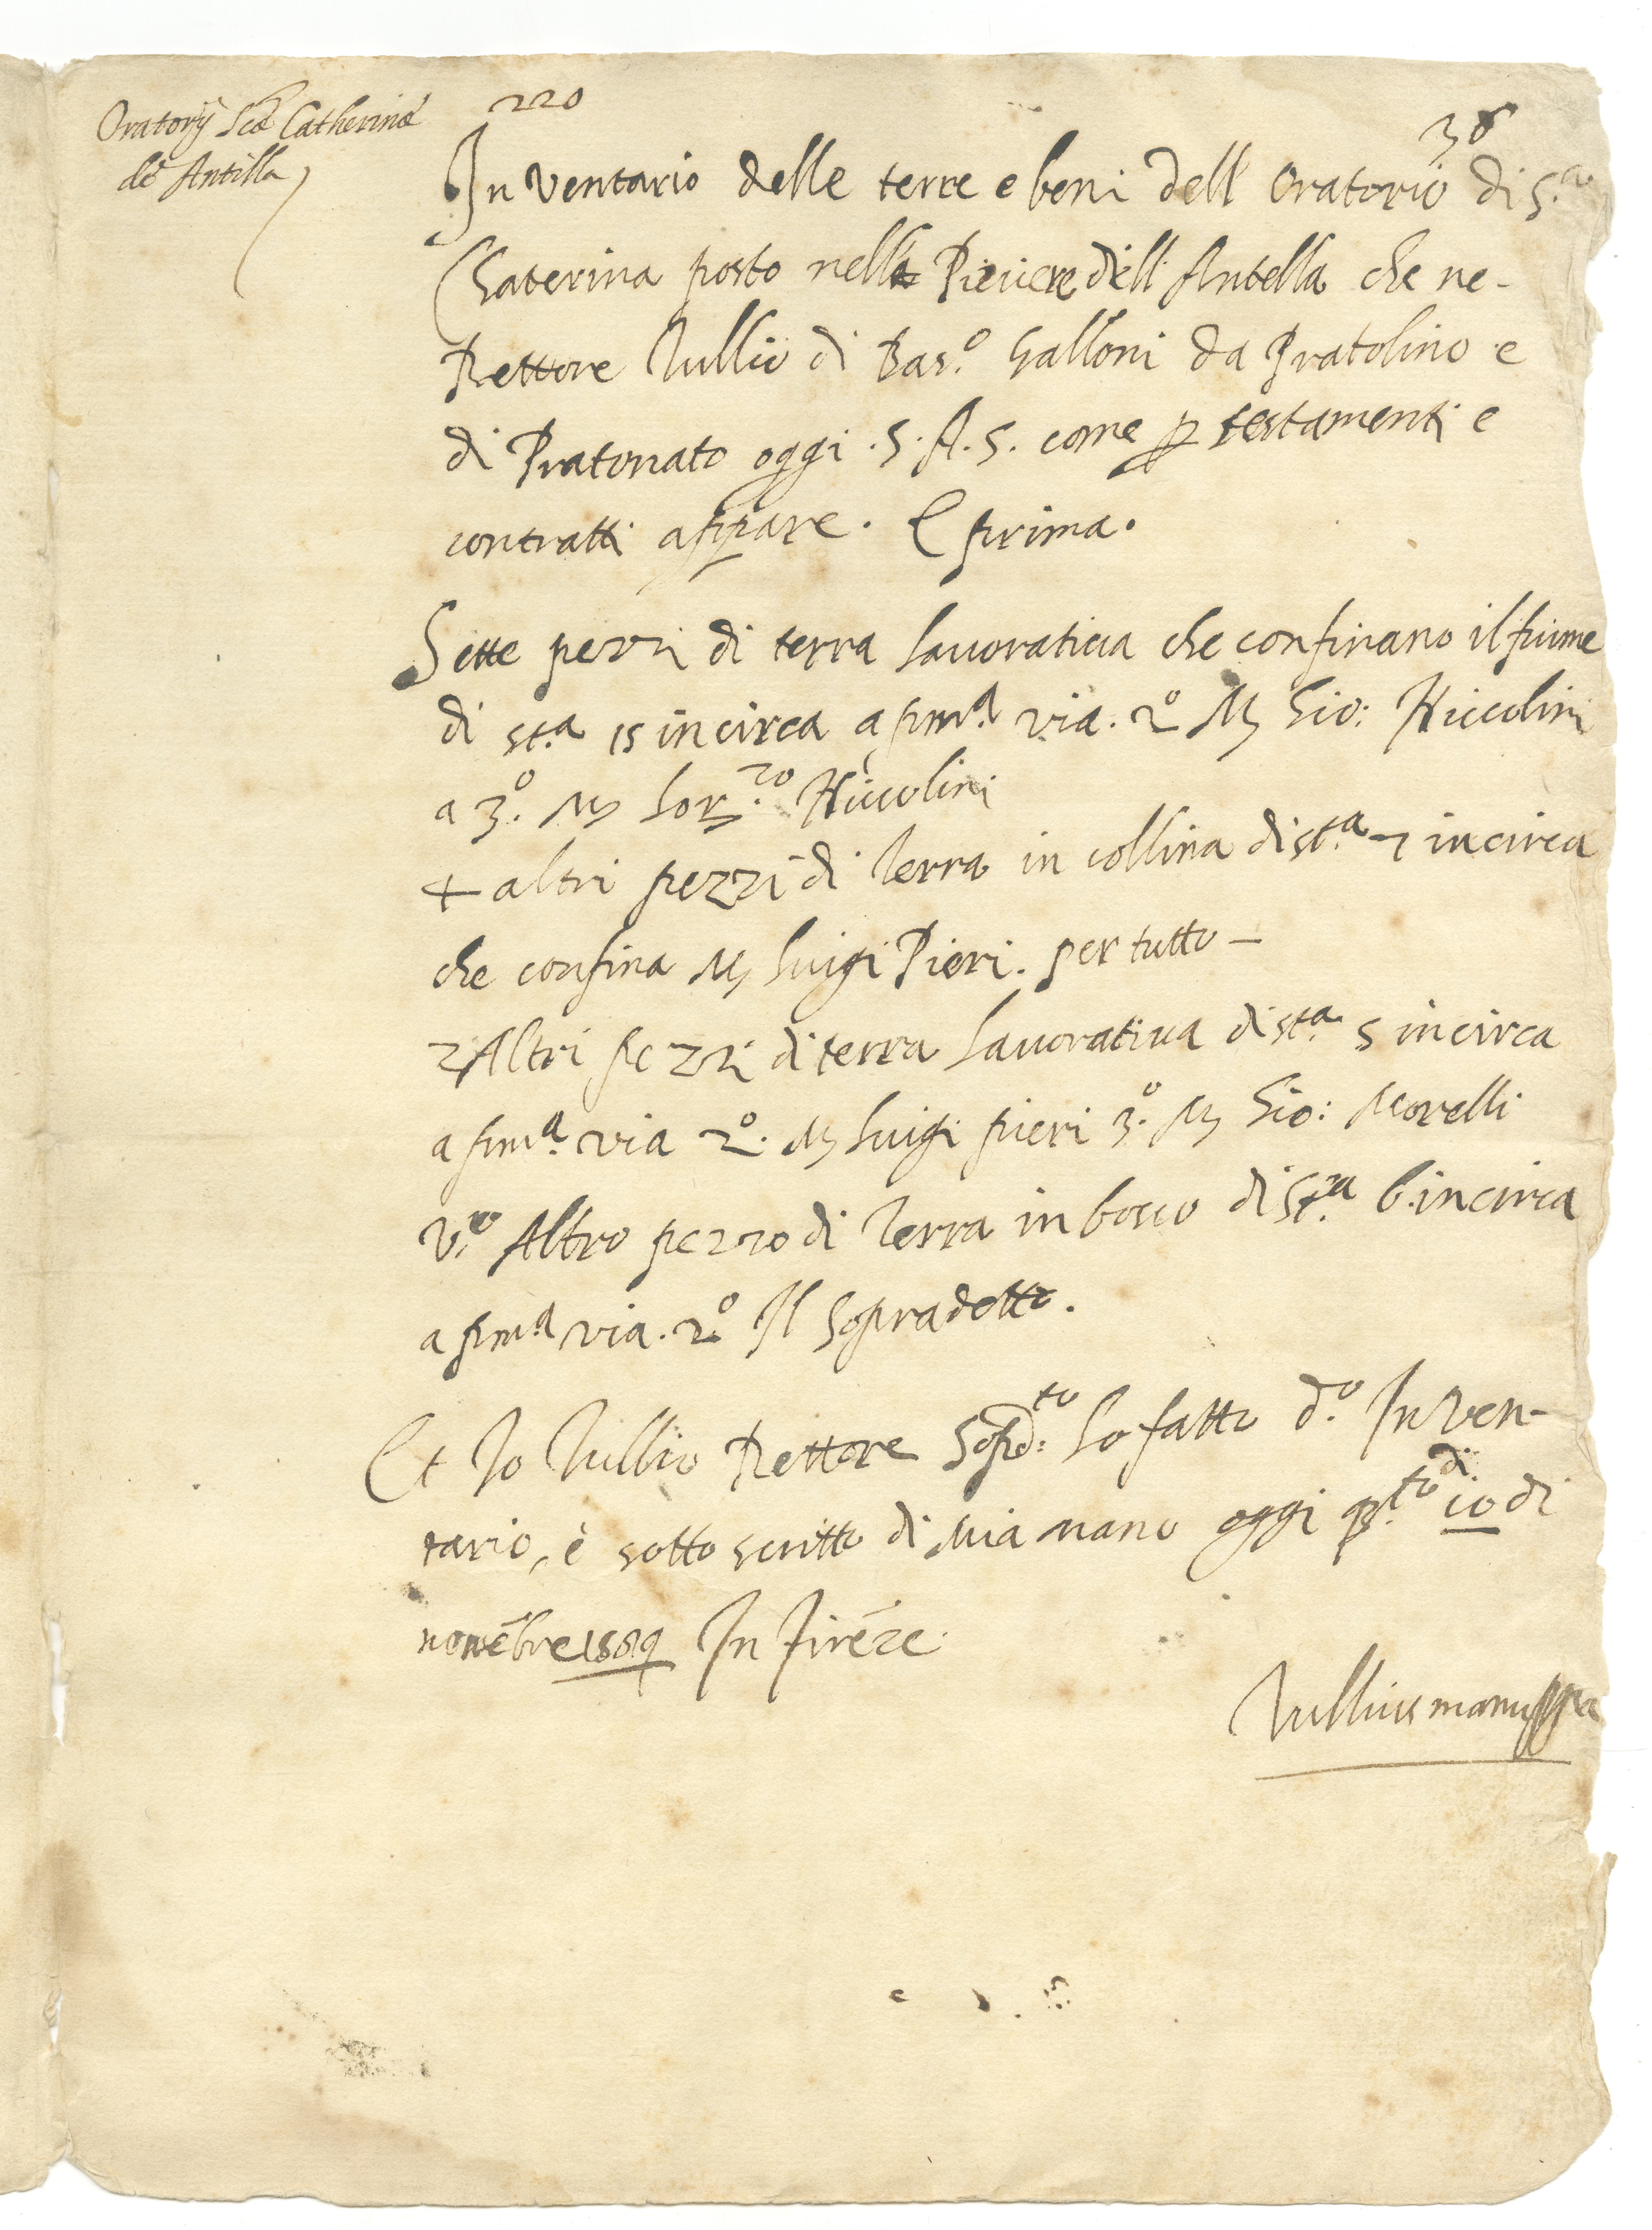 Oratorij Scę Catherinę
de Antilla
220
38
Inventario delle terre e beni dell oratorio di S.ta
Chaterina posto nella Pieuere dell Antella che ne-
Rettore Tullio di Bas.o Galloni da Pratolino e
di Pratonato oggi .S.A.S. come p testamenti e
contratti appare. E prima.
Sette pezzi di terra lauoratiua che confinano il fiume
di st.a 15 in circa a pm.a via. 2.o M Gio: Niccolini
a 3.o M Lor.zo Niccolini
4 altri pezzi di terra in collina di st.a 7 in circa
che confina M luigi Pieri. per tutto -
2 Altri pezzi di terra lauoratiua di st.a 5 in circa
a pm.a via 2.o M luigi pieri 3.o M Gio: Morelli
V.o Altro pezzo di terra in bosco di st.ra 6. in circa
a pm.a via. 2.o Il sopradetto.
Et Io Tullio Rettore Sopd:to ho fatto d.o Inven-
tario, è sotto scritto di Mia mano oggi q.to di 10 di
novēbre 1589 In Firēze
Tullius manu ppa